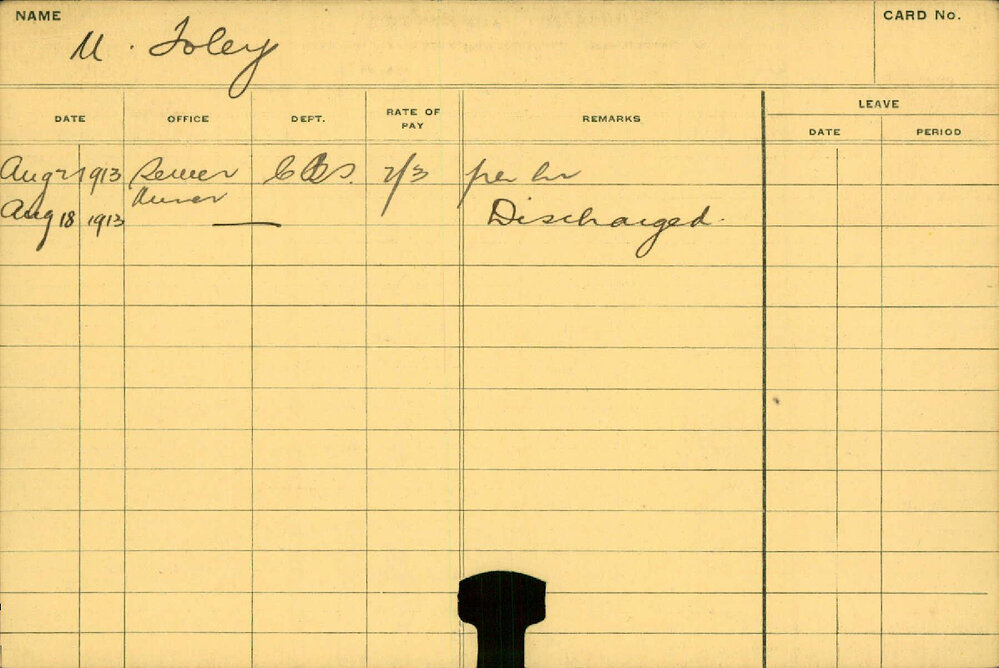 NAME
M. Foley
CARD No.
DATE OFFICE DEPT. RATE OF PAY REMARKS LEAVE
DATE PERIOD
Aug 21 1913 Sewer Miner C&S. 2/3 per hr
Aug 18 1913 — Discharged.